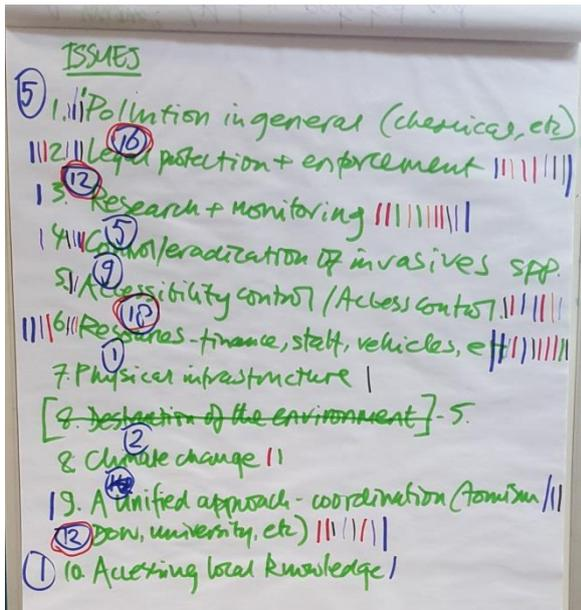 ISSUES
5 1. Pollution in general (chemical, etc)
16
2. Legal protection + enforcement
12
3. Research + monitoring
5
4. Control/eradication of invasives spp.
9
5. Accessibility control / Access control.
18
6. Resources - finance, staff, vehicles, etc
1
7. Physical infrastructure
[8. Destruction of the environment] - 5.
2
8. Climate change
9. A unified approach - coordination (tomism
12 DoW, university, etc)
1 10. Accessing local knowledge